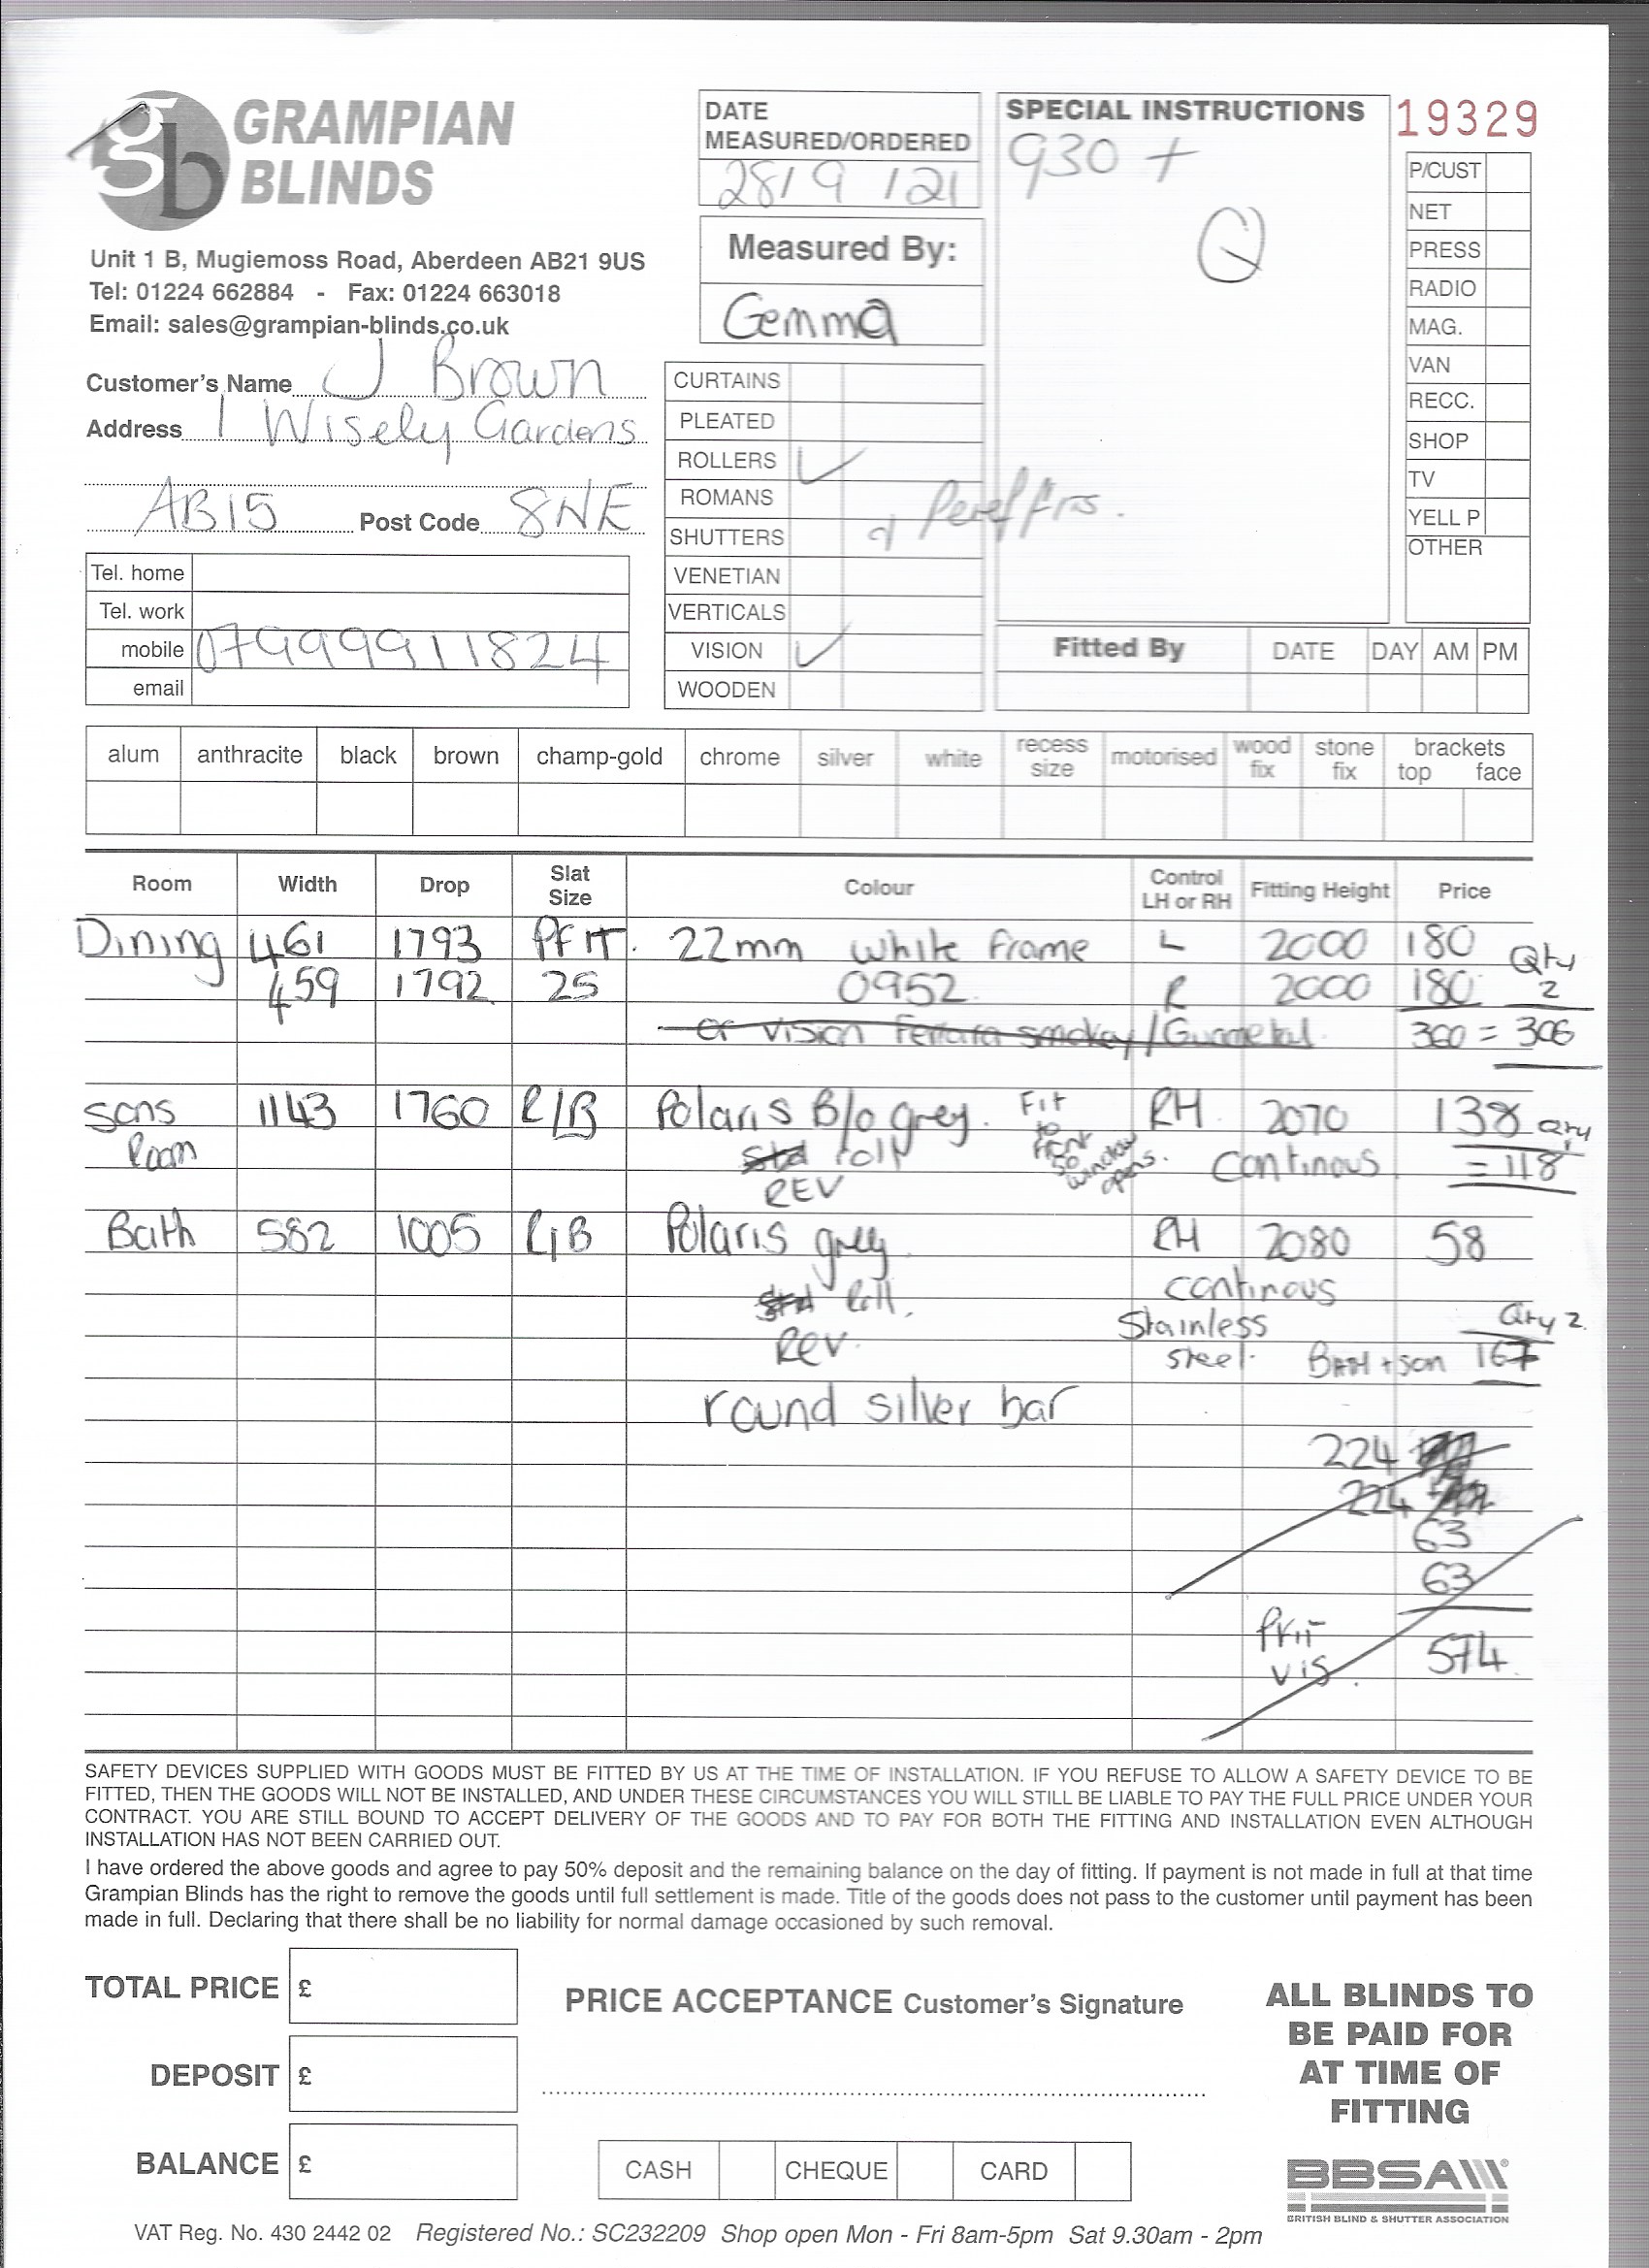 gb GRAMPIAN BLINDS
Unit 1 B, Mugiemoss Road, Aberdeen AB21 9US
Tel: 01224 662884 - Fax: 01224 663018
Email: sales@grampian-blinds.co.uk
Customer's Name J Brown
Address 1 Wisely Gardens
AB15 Post Code 8NE
Tel. home
Tel. work
mobile 07999911824
email
DATE MEASURED/ORDERED
28/9/21
Measured By:
Gemma
CURTAINS
PLEATED
ROLLERS ✓
ROMANS
SHUTTERS
VENETIAN
VERTICALS
VISION ✓
WOODEN
SPECIAL INSTRUCTIONS
930 +
Q
19329
P/CUST
NET
PRESS
RADIO
MAG.
VAN
RECC.
SHOP
TV
YELL P
OTHER
Fitted By DATE DAY AM PM
alum anthracite black brown champ-gold chrome silver white recess size motorised wood fix stone fix brackets top face
Room Width Drop Slat Size Colour Control LH or RH Fitting Height Price
Dining 461 1793 PFIT. 22mm white frame L 2000 180 Qty
459 1792 25 0952 R 2000 180 2
or vision Ferrara smokey/Gunmetal 360 = 306
sons 1143 1760 R/B Polaris B/o grey. Fit to front so window opens. RH 2070 138 Qty
Room Std roll continous = 118
REV
Bath 582 1005 R/B Polaris grey RH 2080 58
Std Roll. continous
REV. Stainless steel. Qty 2
Bath + son 167
round silver bar
224
224
63
63
PFIT
vis. 574
SAFETY DEVICES SUPPLIED WITH GOODS MUST BE FITTED BY US AT THE TIME OF INSTALLATION. IF YOU REFUSE TO ALLOW A SAFETY DEVICE TO BE
FITTED, THEN THE GOODS WILL NOT BE INSTALLED, AND UNDER THESE CIRCUMSTANCES YOU WILL STILL BE LIABLE TO PAY THE FULL PRICE UNDER YOUR
CONTRACT. YOU ARE STILL BOUND TO ACCEPT DELIVERY OF THE GOODS AND TO PAY FOR BOTH THE FITTING AND INSTALLATION EVEN ALTHOUGH
INSTALLATION HAS NOT BEEN CARRIED OUT.
I have ordered the above goods and agree to pay 50% deposit and the remaining balance on the day of fitting. If payment is not made in full at that time
Grampian Blinds has the right to remove the goods until full settlement is made. Title of the goods does not pass to the customer until payment has been
made in full. Declaring that there shall be no liability for normal damage occasioned by such removal.
TOTAL PRICE £
DEPOSIT £
BALANCE £
PRICE ACCEPTANCE Customer's Signature
CASH CHEQUE CARD
ALL BLINDS TO
BE PAID FOR
AT TIME OF
FITTING
BBSA
BRITISH BLIND & SHUTTER ASSOCIATION
VAT Reg. No. 430 2442 02 Registered No.: SC232209 Shop open Mon - Fri 8am-5pm Sat 9.30am - 2pm